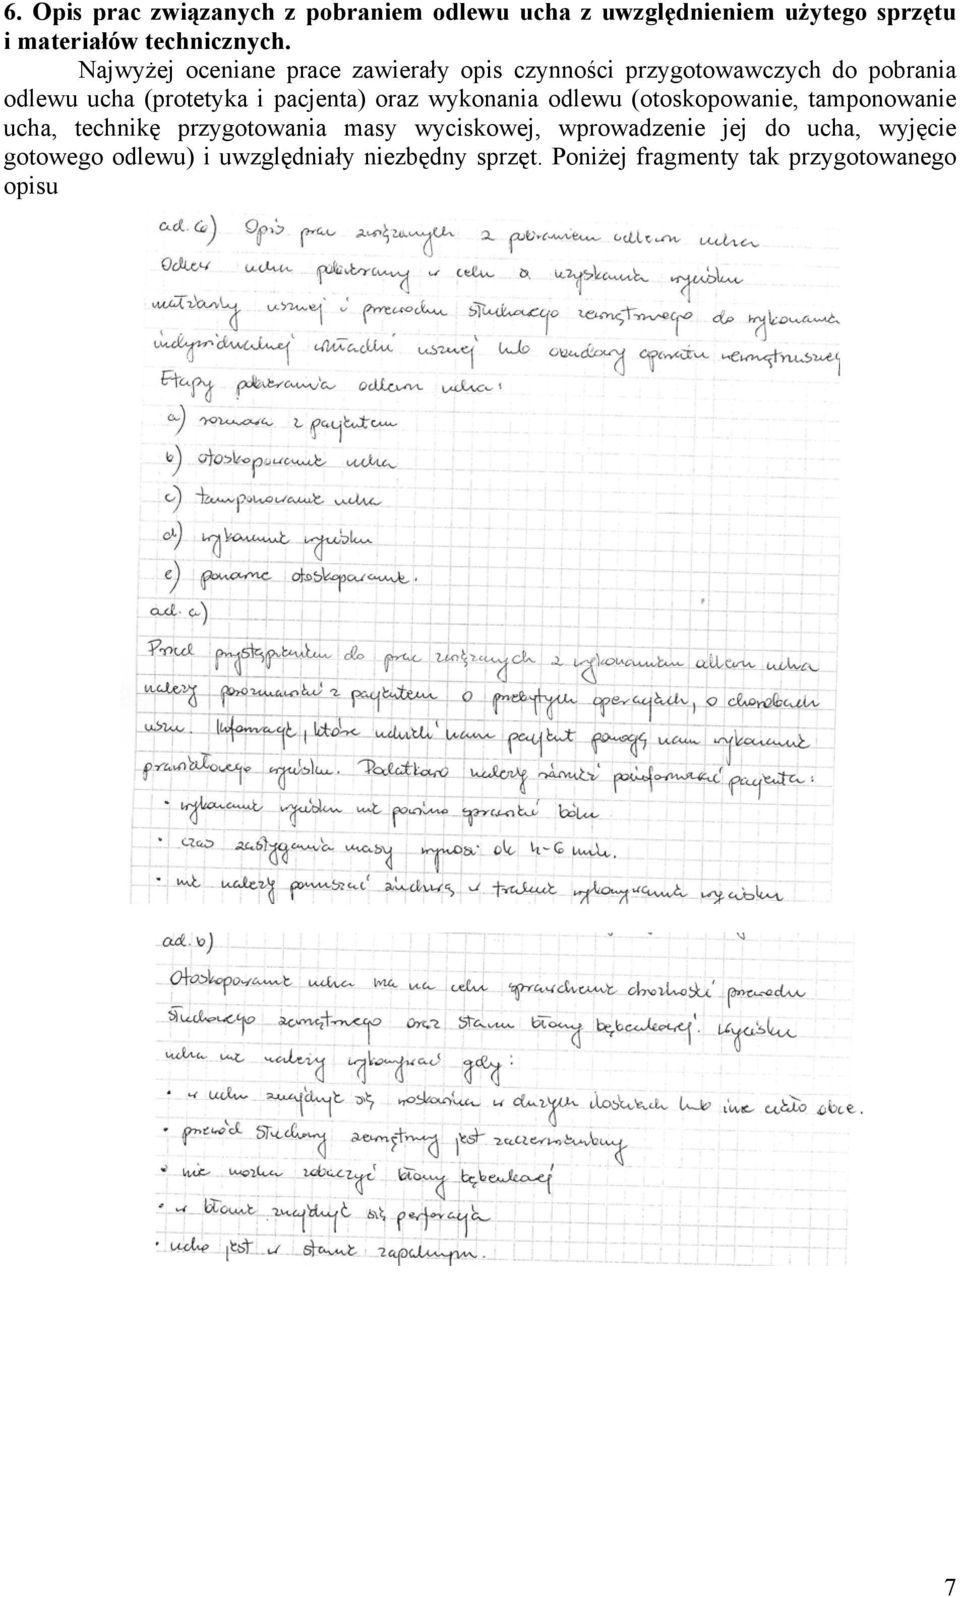 6. Opis prac związanych z pobraniem odlewu ucha z uwzględnieniem użytego sprzętu
i materiałów technicznych.
Najwyżej oceniane prace zawierały opis czynności przygotowawczych do pobrania
odlewu ucha (protetyka i pacjenta) oraz wykonania odlewu (otoskopowanie, tamponowanie
ucha, technikę przygotowania masy wyciskowej, wprowadzenie jej do ucha, wyjęcie
gotowego odlewu) i uwzględniały niezbędny sprzęt. Poniżej fragmenty tak przygotowanego
opisu
ad. 6) Opis prac związanych z pobraniem odlewu ucha
Odlew ucha pobierany w celu uzyskania wycisku
małżowiny usznej i przewodu słuchowego zewnętrznego do wykonania
indywidualnej wkładki usznej lub obudowy aparatu wewnątrzusznej
Etapy pobierania odlewu ucha:
a) rozmowa z pacjentem
b) otoskopowanie ucha
c) tamponowanie ucha
d) wykonanie wycisku
e) ponowne otoskopowanie.
ad. a)
Przed przystąpieniem do prac związanych z wykonaniem odlewu ucha
należy porozmawiać z pacjentem o przebytych operacjach, o chorobach
uszu. Informacje, które udzieli nam pacjent pomogą nam wykonanie
prawidłowego wycisku. Dodatkowo należy również poinformować pacjenta:
• wykonanie wycisku nie powinno sprawiać bólu
• czas zastygania masy wynosi ok 4-6 min.
• nie należy poruszać żuchwą w trakcie wykonywania wycisku
ad. b)
Otoskopowanie ucha ma na celu sprawdzenie drożności przewodu
słuchowego zewnętrznego oraz stanu błony bębenkowej. Wycisku
ucha nie należy wykonywać gdy:
• w uchu znajduje się woskowina w dużych ilościach lub inne ciało obce.
• przewód słuchowy zewnętrzny jest zaczerwieniony
• nie można zobaczyć błony bębenkowej
• w błonie znajduje się perforacja
• ucho jest w stanie zapalnym.
7